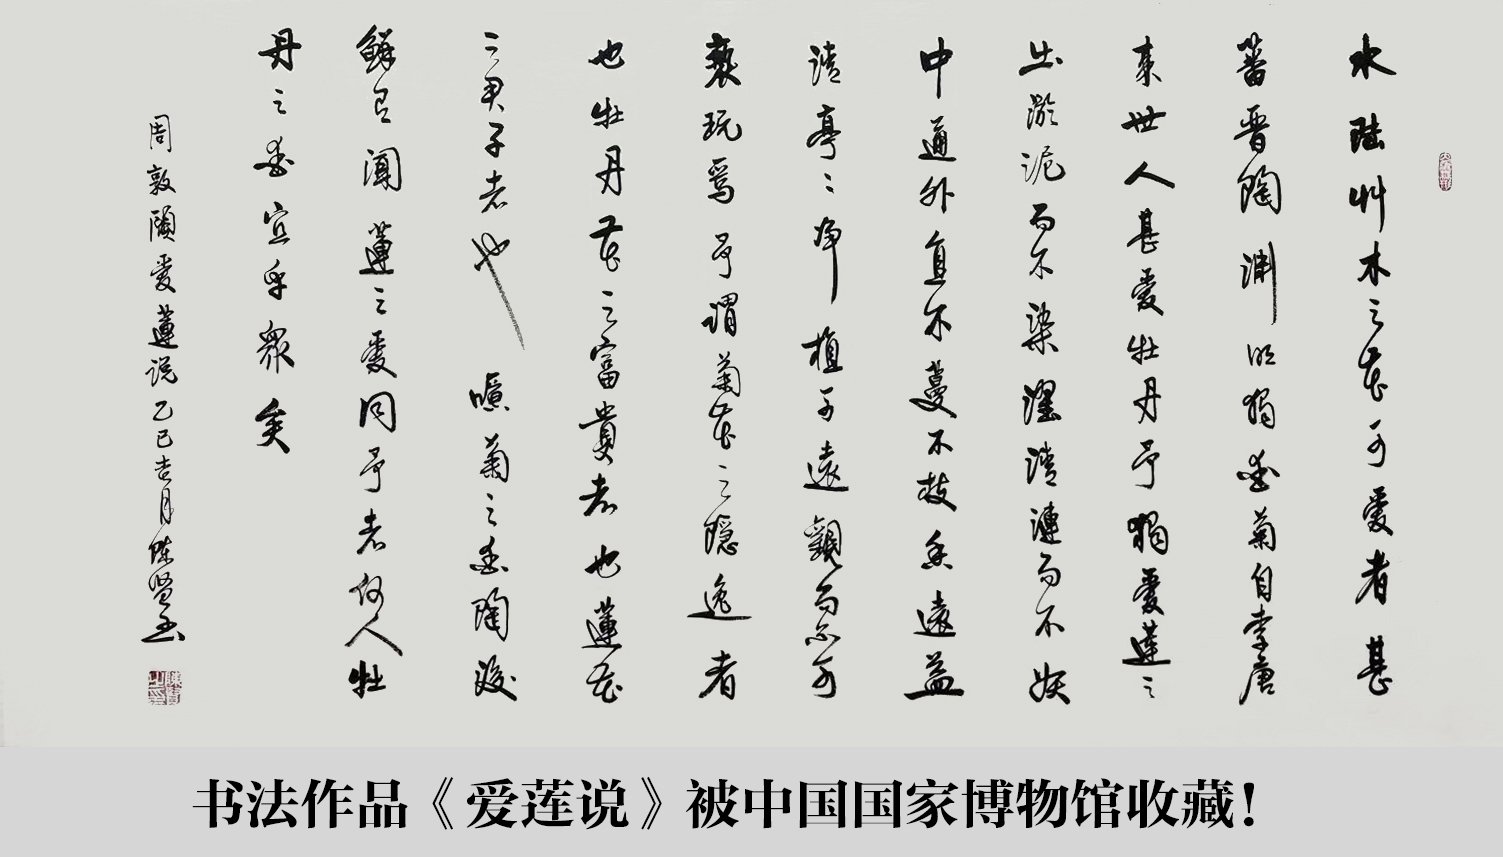 水陸艸木之花可愛者甚
蕃晋陶淵明獨愛菊自李唐
來世人甚愛牡丹予獨愛蓮之
出淤泥而不染濯清漣而不妖
中通外直不蔓不枝香遠益
清亭〻净植可遠觀而不可
褻玩焉予謂菊花之隱逸者
也牡丹花之富貴者也蓮花
之君子者也噫菊之愛陶後
鮮有聞蓮之愛同予者何人牡
丹之愛宜乎衆矣
周敦頤愛蓮说乙巳吉月陈贤书
书法作品《爱莲说》被中国国家博物馆收藏！